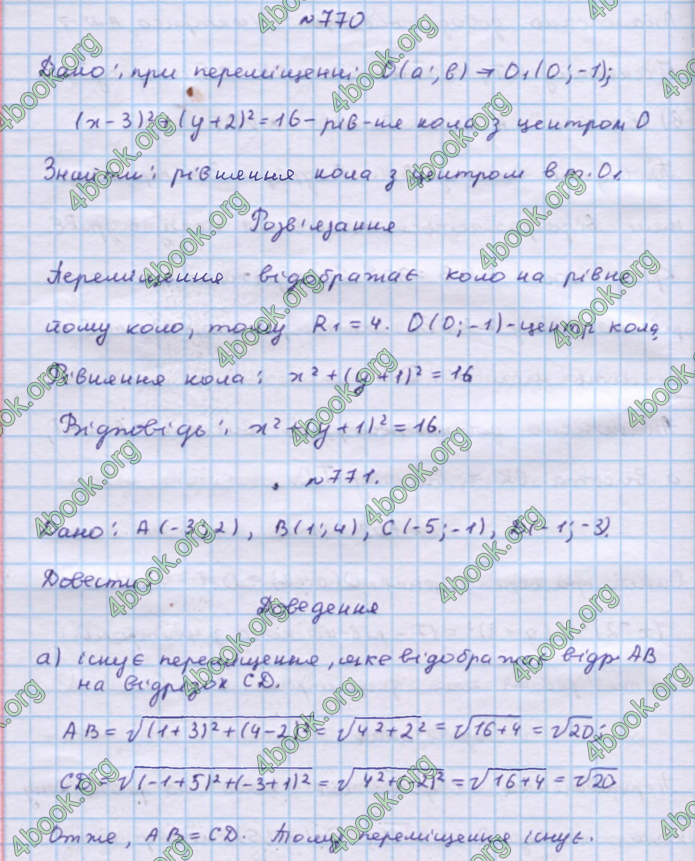 №770
Дано: при переміщенні O(a; b) → O₁(0; -1);
(x-3)²+(y+2)²=16 - рів-ня кола з центром O
Знайти: рівняння кола з центром в т. O₁
Розв'язання
Переміщення відображає коло на рівне
йому коло, тому R₁ = 4. O(0; -1) - центр кола.
Рівняння кола: x²+(y+1)²=16
Відповідь: x²+(y+1)²=16.
№771.
Дано: A(-3; 2), B(1; 4), C(-5; -1), D(-1; -3).
Довести:
Доведення
а) існує переміщення, яке відображає відр AB
на відрізок CD.
AB = √(1+3)²+(4-2)² = √4²+2² = √16+4 = √20;
CD = √(-1+5)²+(-3+1)² = √4²+(-2)² = √16+4 = √20
Отже, AB = CD. Тому переміщення існує.
4book.org